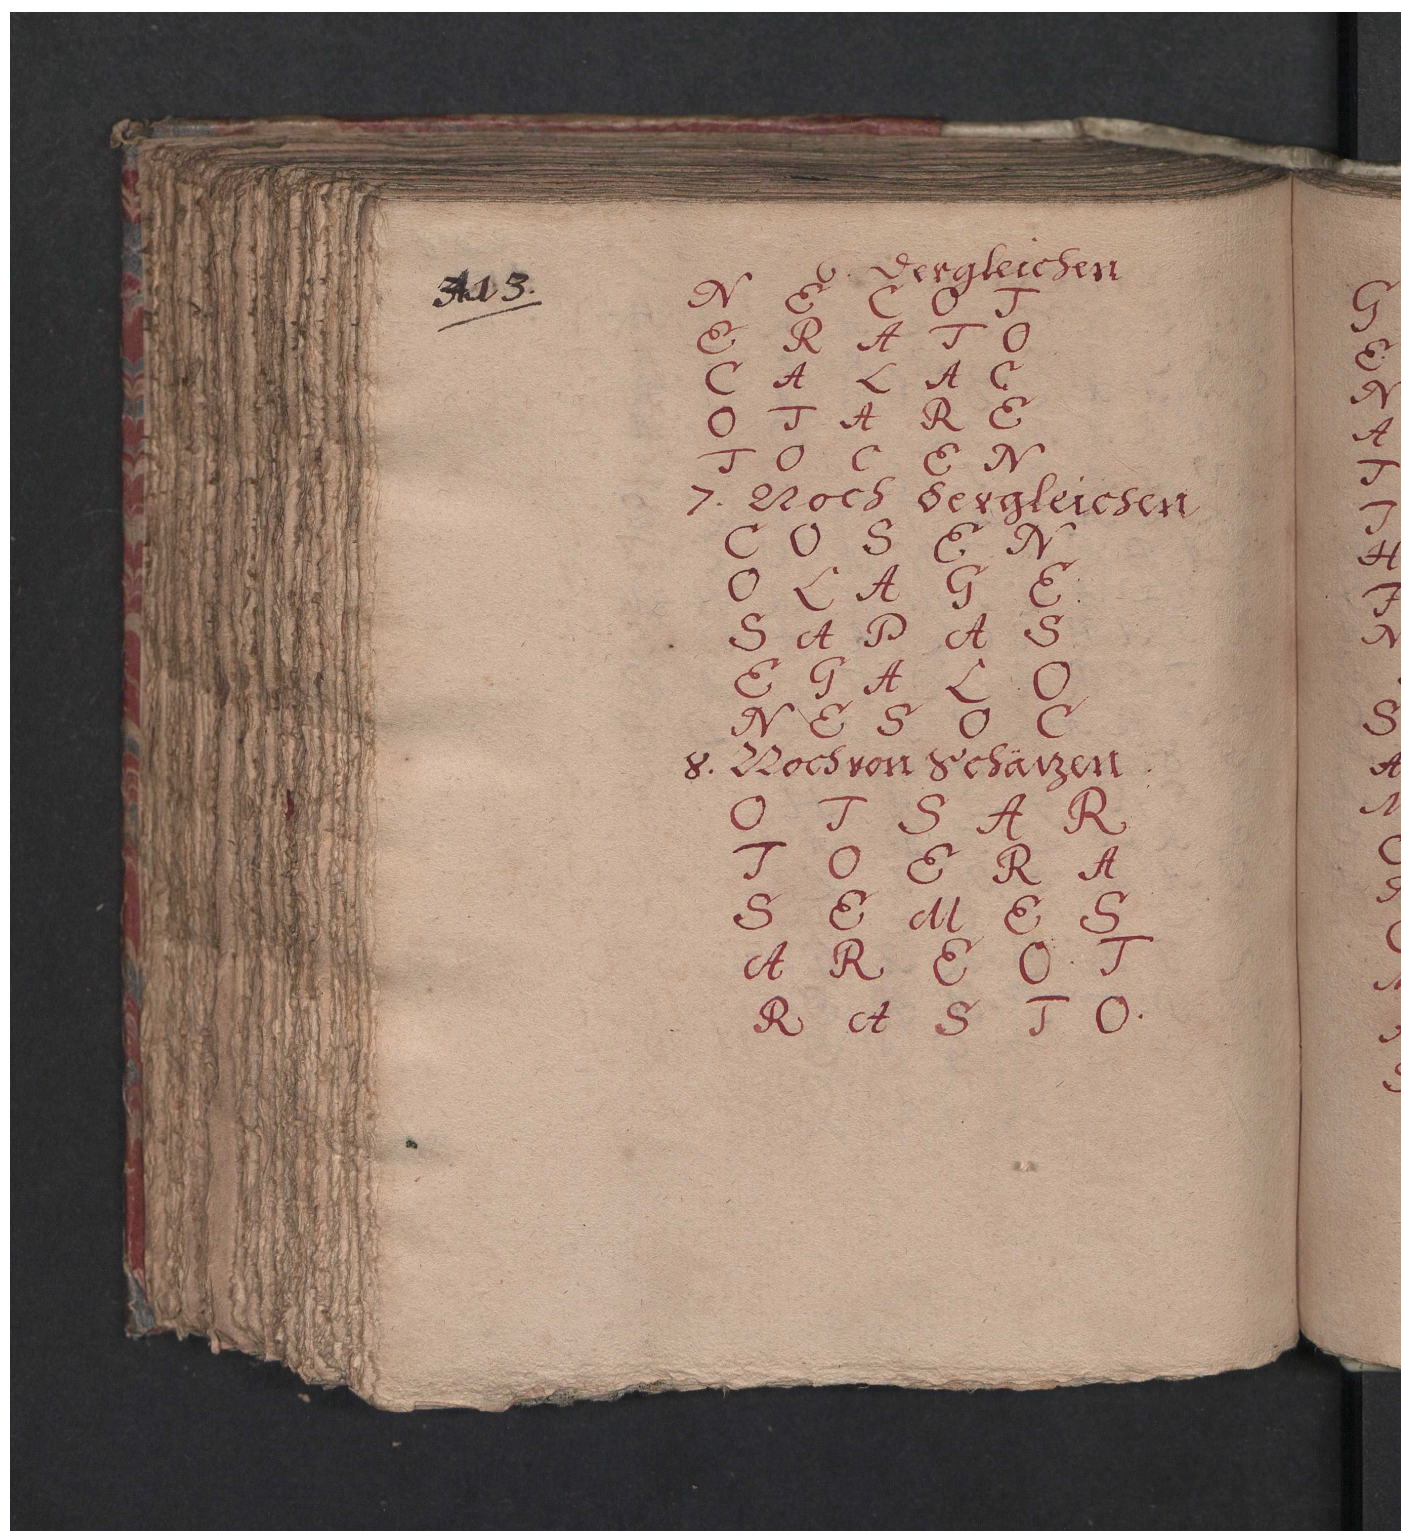 6. Dergleichen
N E C O T
E R A T O
C A L A C
O T A R E
T O C E N
7. Noch dergleichen
C O S E N
O L A G E
S A P A S
E G A L O
N E S O C
8. Noch von Schäzen
O T S A R
T O E R A
S E M E S
A R E O T
R A S T O.
G
E
N
A
T
I
H
F
N
S
A
M